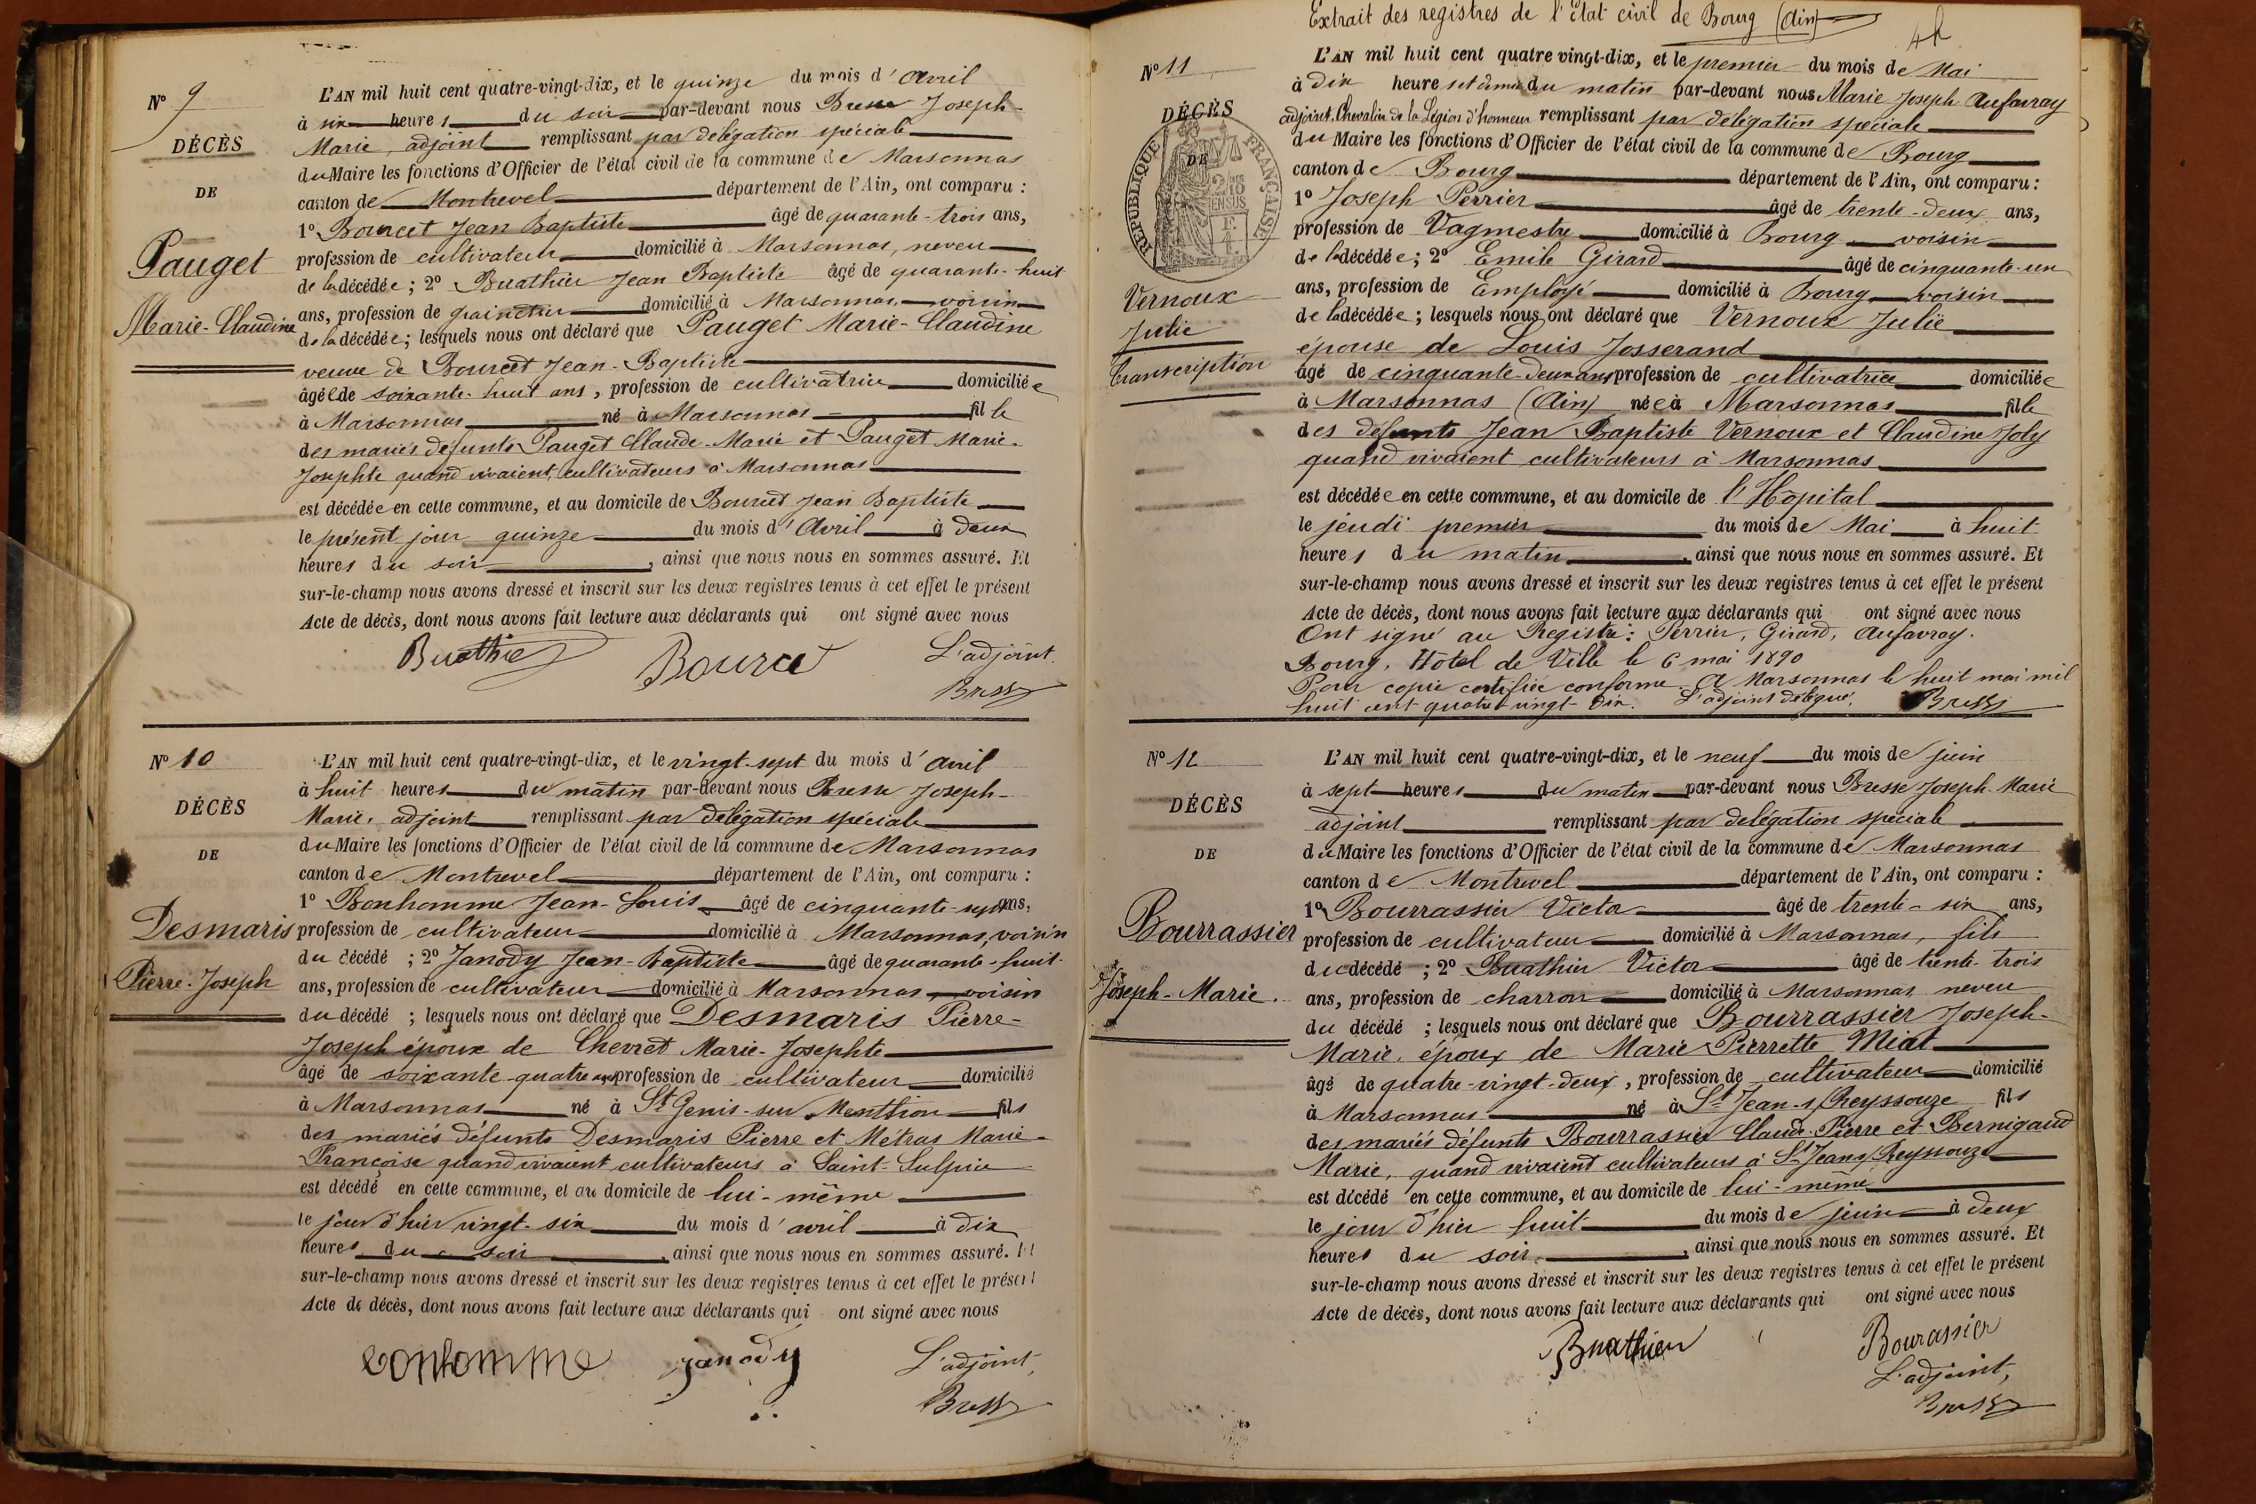 N° 9
DÉCÈS
DE
Pauget
Marie-Claudine
L'AN mil huit cent quatre-vingt-dix, et le quinze du mois d'Avril
à six heures du soir par-devant nous Bresse Joseph-
Marie, adjoint remplissant par délégation spéciale
du Maire les fonctions d'Officier de l'état civil de la commune de Marsonnas
canton de Montrevel département de l'Ain, ont comparu :
1° Bourcet Jean Baptiste âgé de quarante-trois ans,
profession de cultivateur domicilié à Marsonnas, neveu
de la décédée ; 2° Buathier Jean Baptiste âgé de quarante-huit
ans, profession de domicilié à Marsonnas, voisin
de la décédée ; lesquels nous ont déclaré que Pauget Marie-Claudine
veuve de Bourcet Jean-Baptiste
âgée de soixante-huit ans, profession de cultivatrice domiciliée
à Marsonnas né à Marsonnas fille
des mariés défunts Pauget Claude-Marie et Pauget Marie-
Josephte quand vivaient, cultivateurs à Marsonnas
est décédée en cette commune, et au domicile de Bourcet Jean Baptiste
le présent jour quinze du mois d'Avril à deux
heures du soir, ainsi que nous nous en sommes assuré. Et
sur-le-champ nous avons dressé et inscrit sur les deux registres tenus à cet effet le présent
Acte de décès, dont nous avons fait lecture aux déclarants qui ont signé avec nous
Buathier Bourcet L'adjoint
Bresse
N° 10
DÉCÈS
DE
Desmaris
Pierre-Joseph
L'AN mil huit cent quatre-vingt-dix, et le vingt-sept du mois d'avril
à huit heures du matin par-devant nous Bresse Joseph-
Marie, adjoint remplissant par délégation spéciale
du Maire les fonctions d'Officier de l'état civil de la commune de Marsonnas
canton de Montrevel département de l'Ain, ont comparu :
1° Bonhomme Jean-Louis âgé de cinquante-sept ans,
profession de cultivateur domicilié à Marsonnas, voisin
du décédé ; 2° Janody Jean-Baptiste âgé de quarante-huit-
ans, profession de cultivateur domicilié à Marsonnas, voisin
du décédé ; lesquels nous ont déclaré que Desmaris Pierre-
Joseph époux de Chevret Marie-Josephte
âgé de soixante quatre ans profession de cultivateur domicilié
à Marsonnas né à St Genis-sur Menthon fils
des mariés défunts Desmaris Pierre et Métras Marie-
Françoise quand vivaient cultivateurs à Saint-Sulpice
est décédé en cette commune, et au domicile de lui-même
le jour d'hier vingt-six du mois d'avril à dix
heures du soir, ainsi que nous nous en sommes assuré. Et
sur-le-champ nous avons dressé et inscrit sur les deux registres tenus à cet effet le présent
Acte de décès, dont nous avons fait lecture aux déclarants qui ont signé avec nous
Bonhomme Janody L'adjoint,
Bresse
Extrait des registres de l'Etat civil de Bourg (Ain)
N° 11
DÉCÈS
DE
RÉPUBLIQUE FRANÇAISE
Vernoux
Julie
Transcription
L'AN mil huit cent quatre vingt-dix, et le premier du mois de Mai
à dix heure et demie du matin par-devant nous Marie Joseph Aufavray
adjoint, Chevalier de la Légion d'honneur remplissant par délégation spéciale
du Maire les fonctions d'Officier de l'état civil de la commune de Bourg
canton de Bourg département de l'Ain, ont comparu :
1° Joseph Perrier âgé de trente-deux ans,
profession de Vagmestre domicilié à Bourg voisin
de la décédée ; 2° Emile Girard âgé de cinquante-un
ans, profession de Employé domicilié à Bourg voisin
de la décédée ; lesquels nous ont déclaré que Vernoux Julie
épouse de Louis Josserand
âgé de cinquante-deux ans profession de cultivatrice domiciliée
à Marsonnas (Ain) née à Marsonnas fille
des défunts Jean Baptiste Vernoux et Claudine Joly
quand vivaient cultivateurs à Marsonnas
est décédée en cette commune, et au domicile de l'Hôpital
le jeudi premier du mois de Mai à huit
heures du matin, ainsi que nous nous en sommes assuré. Et
sur-le-champ nous avons dressé et inscrit sur les deux registres tenus à cet effet le présent
Acte de décès, dont nous avons fait lecture aux déclarants qui ont signé avec nous
Ont signé au Registre : Perrier, Girard, Aufavray.
Bourg, Hôtel de Ville le 6 mai 1890
Pour copie certifiée conforme. A Marsonnas le huit mai mil
huit cent quatre-vingt-dix. L'adjoint délégué, Bresse
N° 12
DÉCÈS
DE
Bourrassier
Joseph-Marie.
L'AN mil huit cent quatre-vingt-dix, et le neuf du mois de juin
à sept heures du matin par-devant nous Bresse Joseph-Marie
adjoint remplissant par délégation spéciale
du Maire les fonctions d'Officier de l'état civil de la commune de Marsonnas
canton de Montrevel département de l'Ain, ont comparu :
1° Bourrassier Victor âgé de trente-six ans,
profession de cultivateur domicilié à Marsonnas, fils
du décédé ; 2° Buathier Victor âgé de trente-trois
ans, profession de charron domicilié à Marsonnas neveu
du décédé ; lesquels nous ont déclaré que Bourrassier Joseph-
Marie, époux de Marie Pierrette Miat
âgé de quatre-vingt-deux, profession de cultivateur domicilié
à Marsonnas né à St Jean s/Reyssouze fils
des mariés défunts Bourrassier Claude-Pierre et Bernigaud
Marie, quand vivaient cultivateurs à St Jean s/Reyssouze
est décédé en cette commune, et au domicile de lui-même
le jour d'hier huit du mois de juin à deux
heures du soir, ainsi que nous nous en sommes assuré. Et
sur-le-champ nous avons dressé et inscrit sur les deux registres tenus à cet effet le présent
Acte de décès, dont nous avons fait lecture aux déclarants qui ont signé avec nous
Buathier Bourassier
L'adjoint,
Bresse